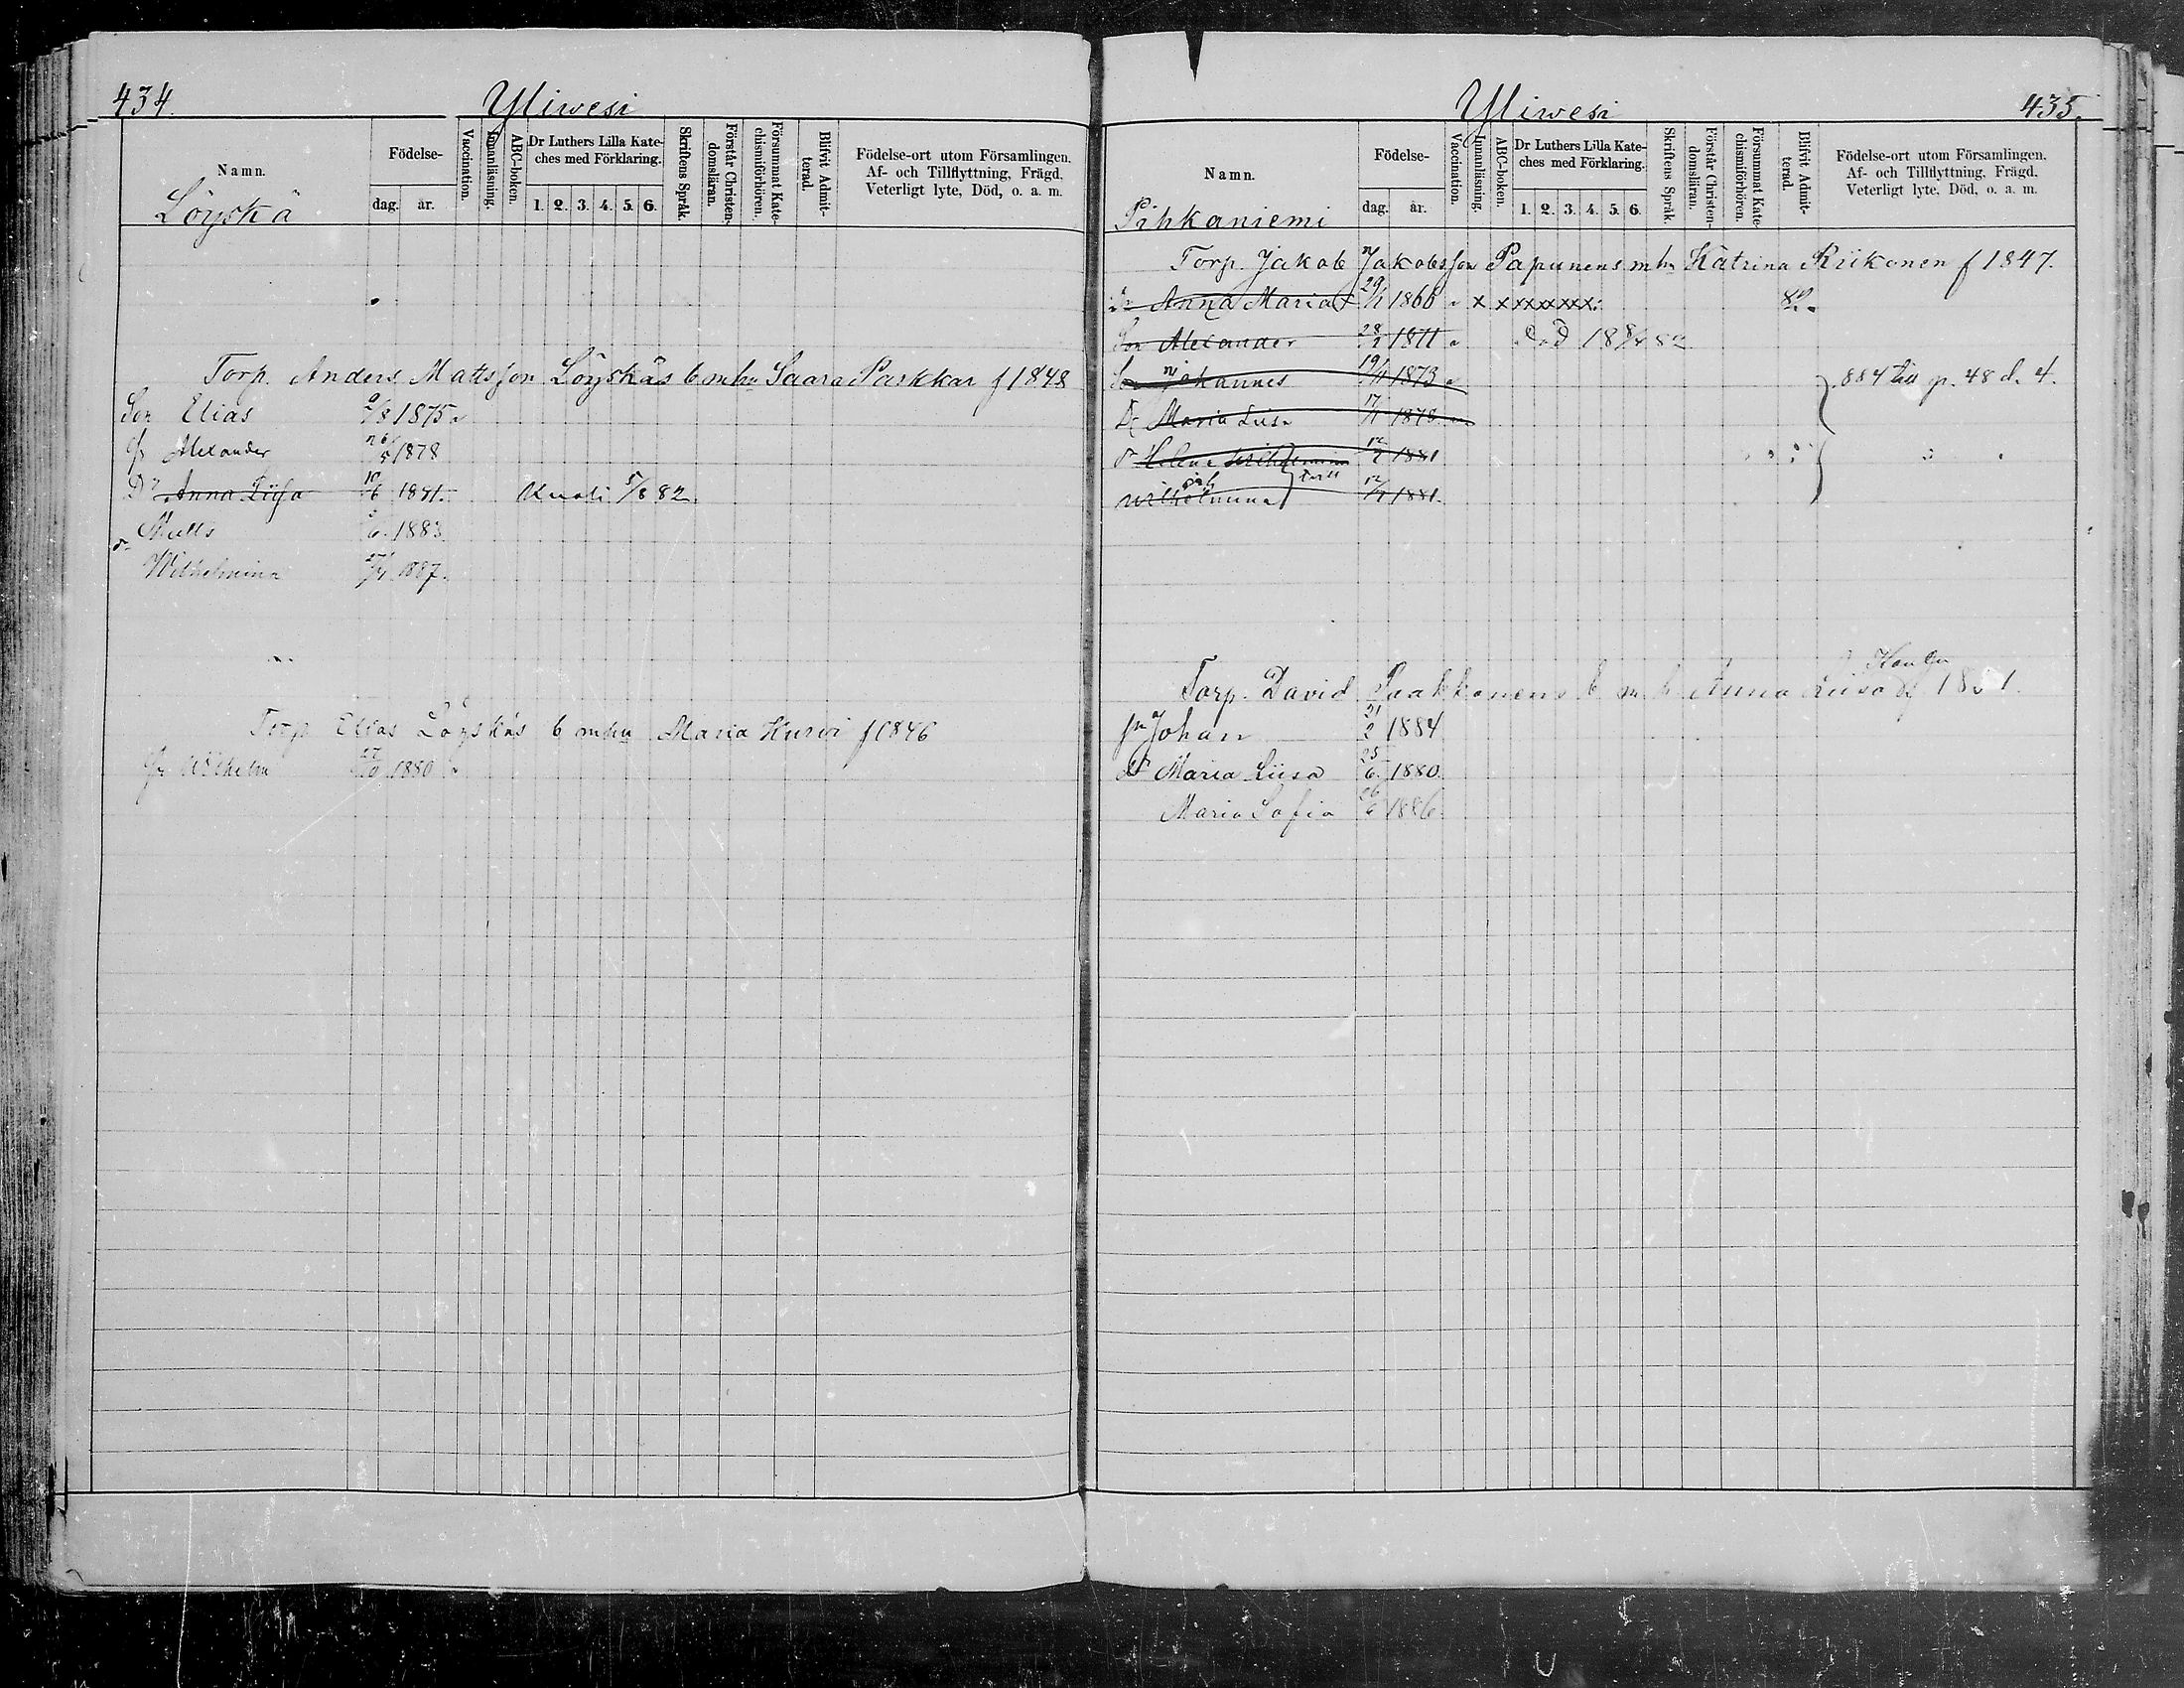 434.
Yliwesi
Namn.
Födelse-
dag.
år.
Vaccination.
Innanläsning.
ABC-boken.
Dr Luthers Lilla Kate-
ches med Förklaring.
1. 2. 3. 4. 5. 6.
Skriftens Språk.
Förstår Christen-
domsläran.
Försummat Kate-
chismiförhören.
Blifvit Admit-
terad.
Födelse-ort utom Församlingen.
Af- och Tillflyttning, Frägd,
Veterligt lyte, Död, o. a. m.
Löyskä
Torp. Anders Mattsson Löyskäs b m hu Saara Parkkar f 1848
Son Elias 9/8 1875
Alexander 26/5 1878
Dr Anna Liisa 10/6 1881. Kuoli 5/8 82.
Matts 1883
Wilhelmina 1887.
Torp Elias Löyskäs b m hu Maria Hurri f 1846
Wilhelm 27/10 1880
Yliwesi
435.
Namn.
Födelse-
dag.
år.
Vaccination.
Innanläsning.
ABC-boken.
Dr Luthers Lilla Kate-
ches med Förklaring.
1. 2. 3. 4. 5. 6.
Skriftens Språk.
Förstår Christen-
domsläran.
Försummat Kate-
chismiförhören.
Blifvit Admit-
terad.
Födelse-ort utom Församlingen.
Af- och Tillflyttning, Frägd,
Veterligt lyte, Död, o. a. m.
Pihkaniemi
Torp. Jakob Jakobsson Papunens m hu Katrina Riikonen f 1847.
Dr Anna Maria 29/1 1866 x x xxxxxxx
Son Alexander 1871 död
Son Johannes 19/1 1873 884 till p. 48 d. 4.
Dr Maria Liisa 17/1 1878
Helena 12/7 1881
Wilhelmina 12/7 1881.
Torp. David Paakkonens b m h Anna Liisa
Johan 21/2 1884
dr Maria Liisa 25/6 1880.
Maria Sofia 26/6 1886.